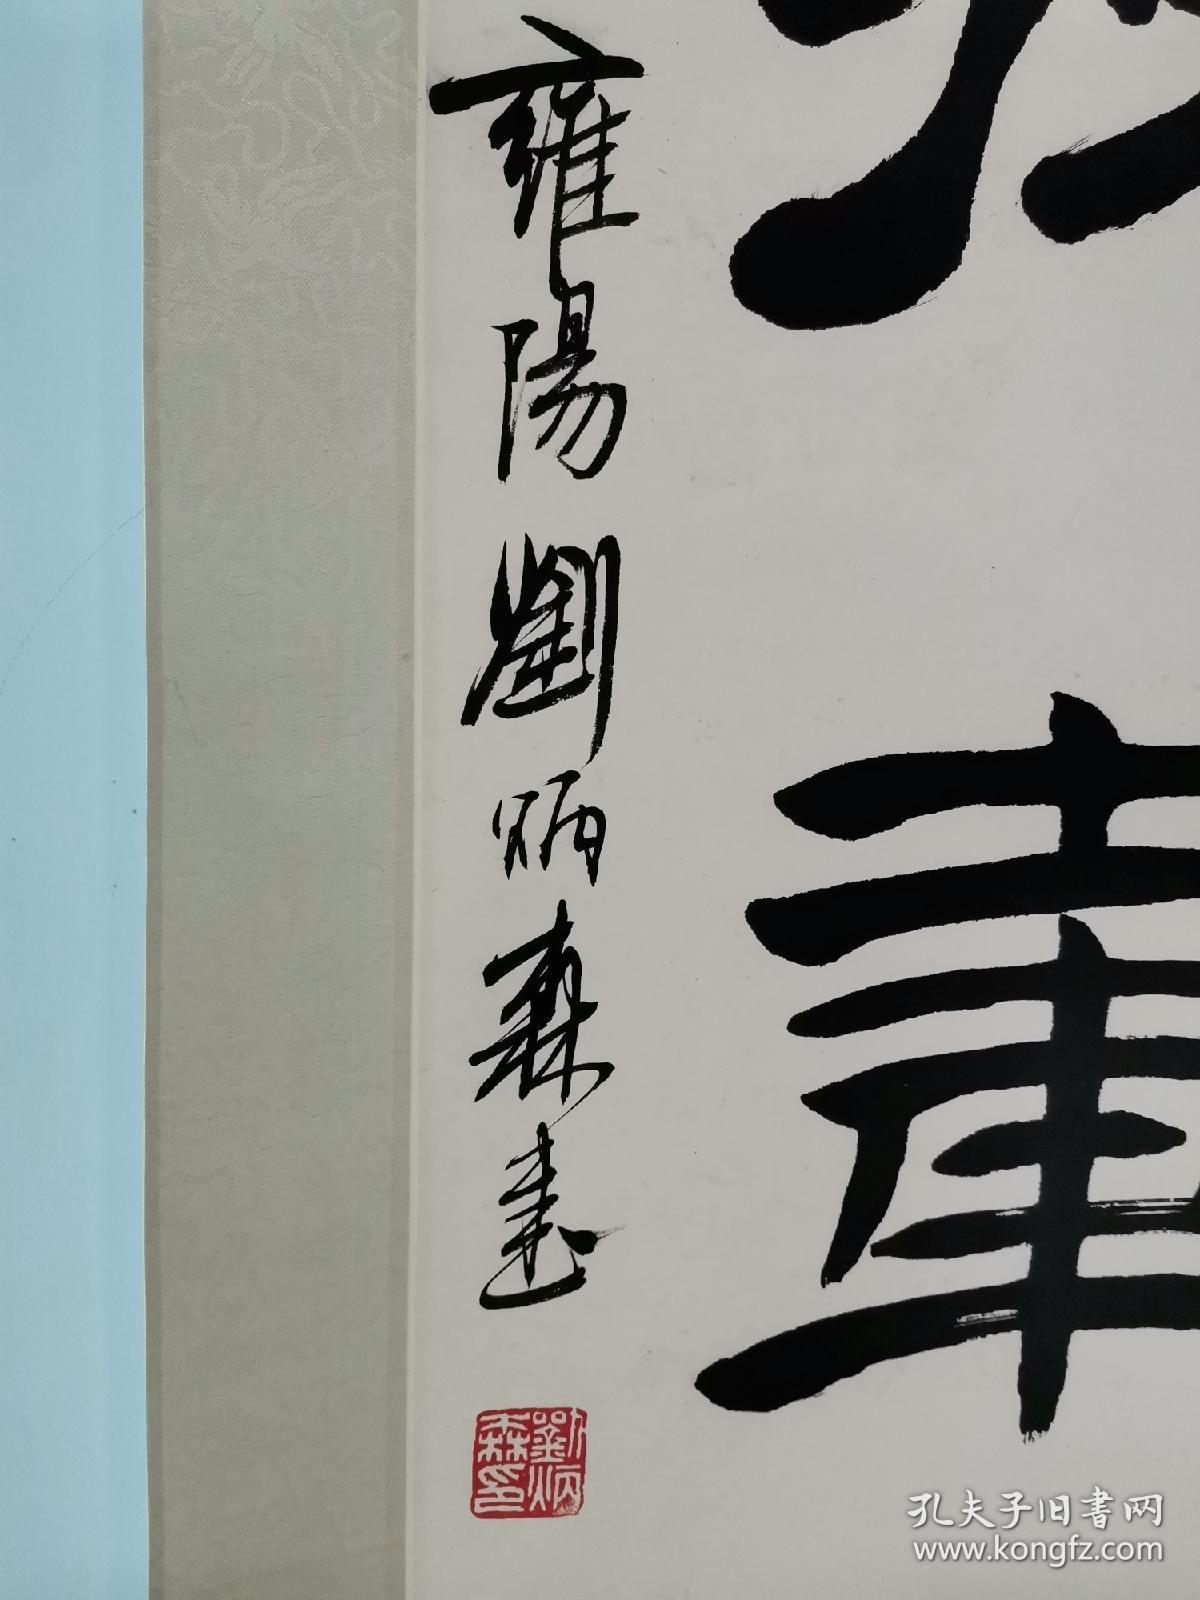 華
雍陽劉炳森書
劉炳森印
孔夫子旧书网
www.kongfz.com